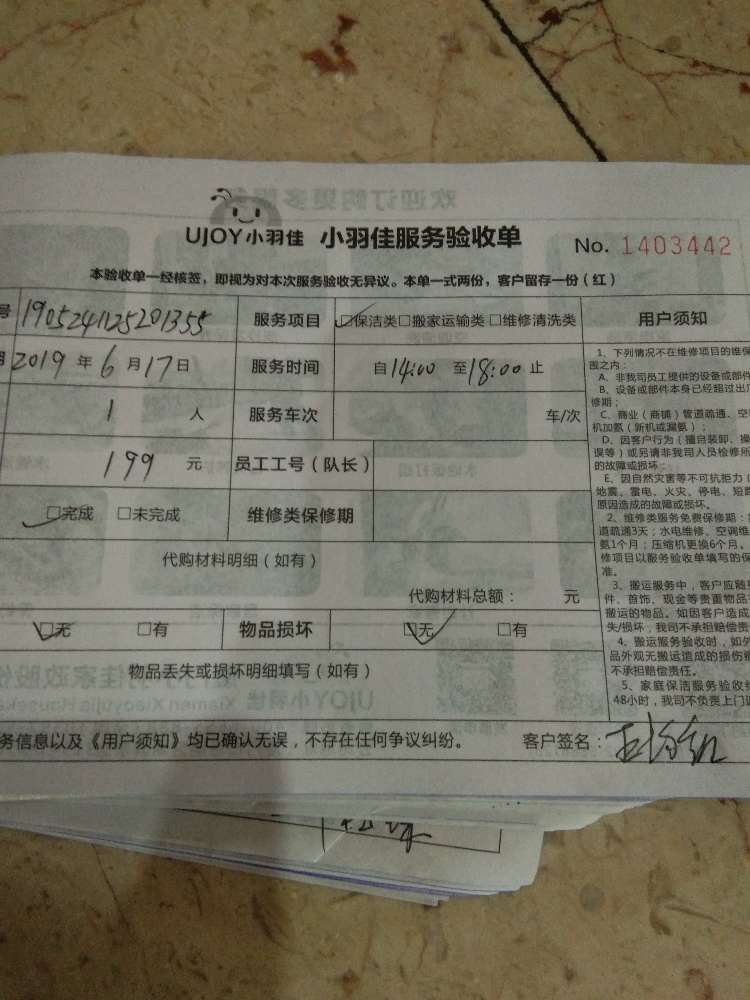 UJOY小羽佳 小羽佳服务验收单 No. 1403442
本验收单一经核签，即视为对本次服务验收无异议。本单一式两份，客户留存一份（红）
号 190524112520135 服务项目 ☑保洁类☐搬家运输类☐维修清洗类 用户须知
2019 年 6 月 17 日 服务时间 自 14:00 至 18:00 止
1 人 服务车次 车/次
199 元 员工工号（队长）
☑完成 ☐未完成 维修类保修期
代购材料明细（如有）
代购材料总额： 元
☑无 ☐有 物品损坏 ☑无 ☐有
物品丢失或损坏明细填写（如有）
务信息以及《用户须知》均已确认无误，不存在任何争议纠纷。 客户签名：
1、下列情况不在维修项目的维保
围之内：
A、非我司员工提供的设备或部件
B、设备或部件本身已经超过出厂
修期；
C、商业（商铺）管道疏通、空
机加氨（新机或漏氨）；
D、因客户行为（擅自装卸、操
误等）或另请非我司人员检修所
的故障或损坏；
E、因自然灾害等不可抗拒力（
地震、雷电、火灾、停电、短路
原因造成的故障或损坏。
2、维修类服务免费保修期：
道疏通3天；水电维修、空调维
氨1个月；压缩机更换6个月。
修项目以服务验收单填写的保
准。
3、搬运服务中，客户应随
件、首饰、现金等贵重物品
搬运的物品。如因客户造成
失/损坏，我司不承担赔偿责
4、搬运服务验收时，如外
品外观无搬运造成的损伤
不承担赔偿责任。
5、家庭保洁服务验收
48小时，我司不负责上门